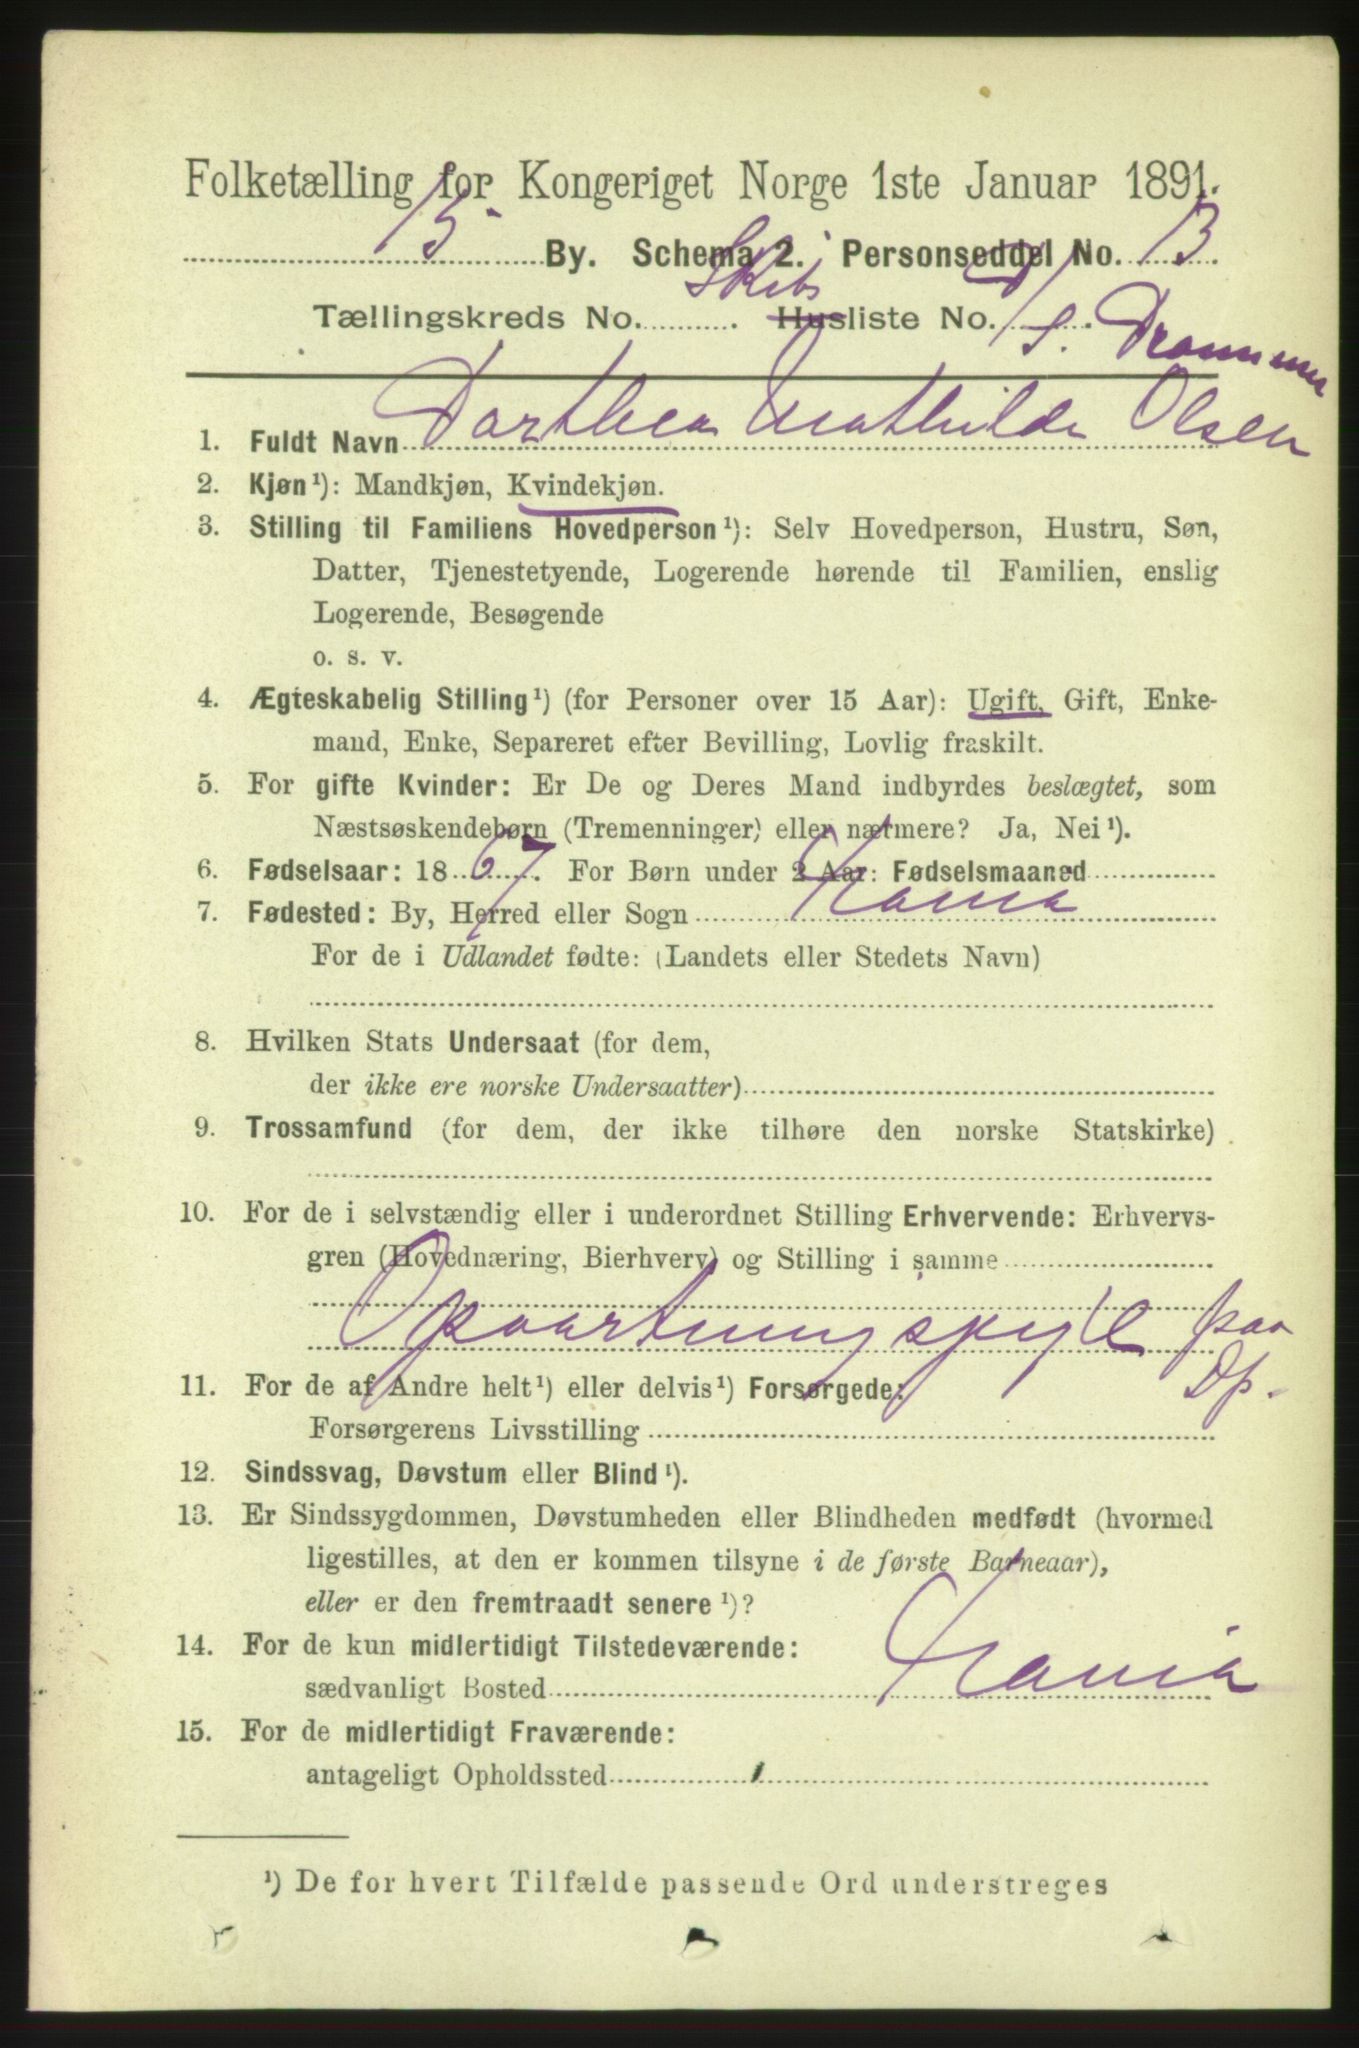 Folketælling for Kongeriget Norge 1ste Januar 1891.
15 By. Schema 2. Personseddel No. 13
Tællingskreds No. . Skibs Husliste No. D/S. Drammen
1. Fuldt Navn Dorthea Mathilde Olsen
2. Kjøn¹): Mandkjøn, Kvindekjøn.
3. Stilling til Familiens Hovedperson¹): Selv Hovedperson, Hustru, Søn,
Datter, Tjenestetyende, Logerende hørende til Familien, enslig
Logerende, Besøgende
o. s. v.
4. Ægteskabelig Stilling¹) (for Personer over 15 Aar): Ugift, Gift, Enke-
mand, Enke, Separeret efter Bevilling, Lovlig fraskilt.
5. For gifte Kvinder: Er De og Deres Mand indbyrdes beslægtet, som
Næstsøskendebørn (Tremenninger) eller nærmere? Ja, Nei¹).
6. Fødselsaar: 1867. For Børn under 2 Aar: Fødselsmaaned
7. Fødested: By, Herred eller Sogn Xania
For de i Udlandet fødte: (Landets eller Stedets Navn)
8. Hvilken Stats Undersaat (for dem,
der ikke ere norske Undersaatter)
9. Trossamfund (for dem, der ikke tilhøre den norske Statskirke)
10. For de i selvstændig eller i underordnet Stilling Erhvervende: Erhvervs-
gren (Hovednæring, Bierhverv) og Stilling i samme
Opvartningspige paa
Dp.
11. For de af Andre helt¹) eller delvis¹) Forsørgede:
Forsørgerens Livsstilling
12. Sindssvag, Døvstum eller Blind¹).
13. Er Sindssygdommen, Døvstumheden eller Blindheden medfødt (hvormed
ligestilles, at den er kommen tilsyne i de første Barneaar),
eller er den fremtraadt senere¹)?
14. For de kun midlertidigt Tilstedeværende:
sædvanligt Bosted Xania
15. For de midlertidigt Fraværende:
antageligt Opholdssted
¹) De for hvert Tilfælde passende Ord understreges